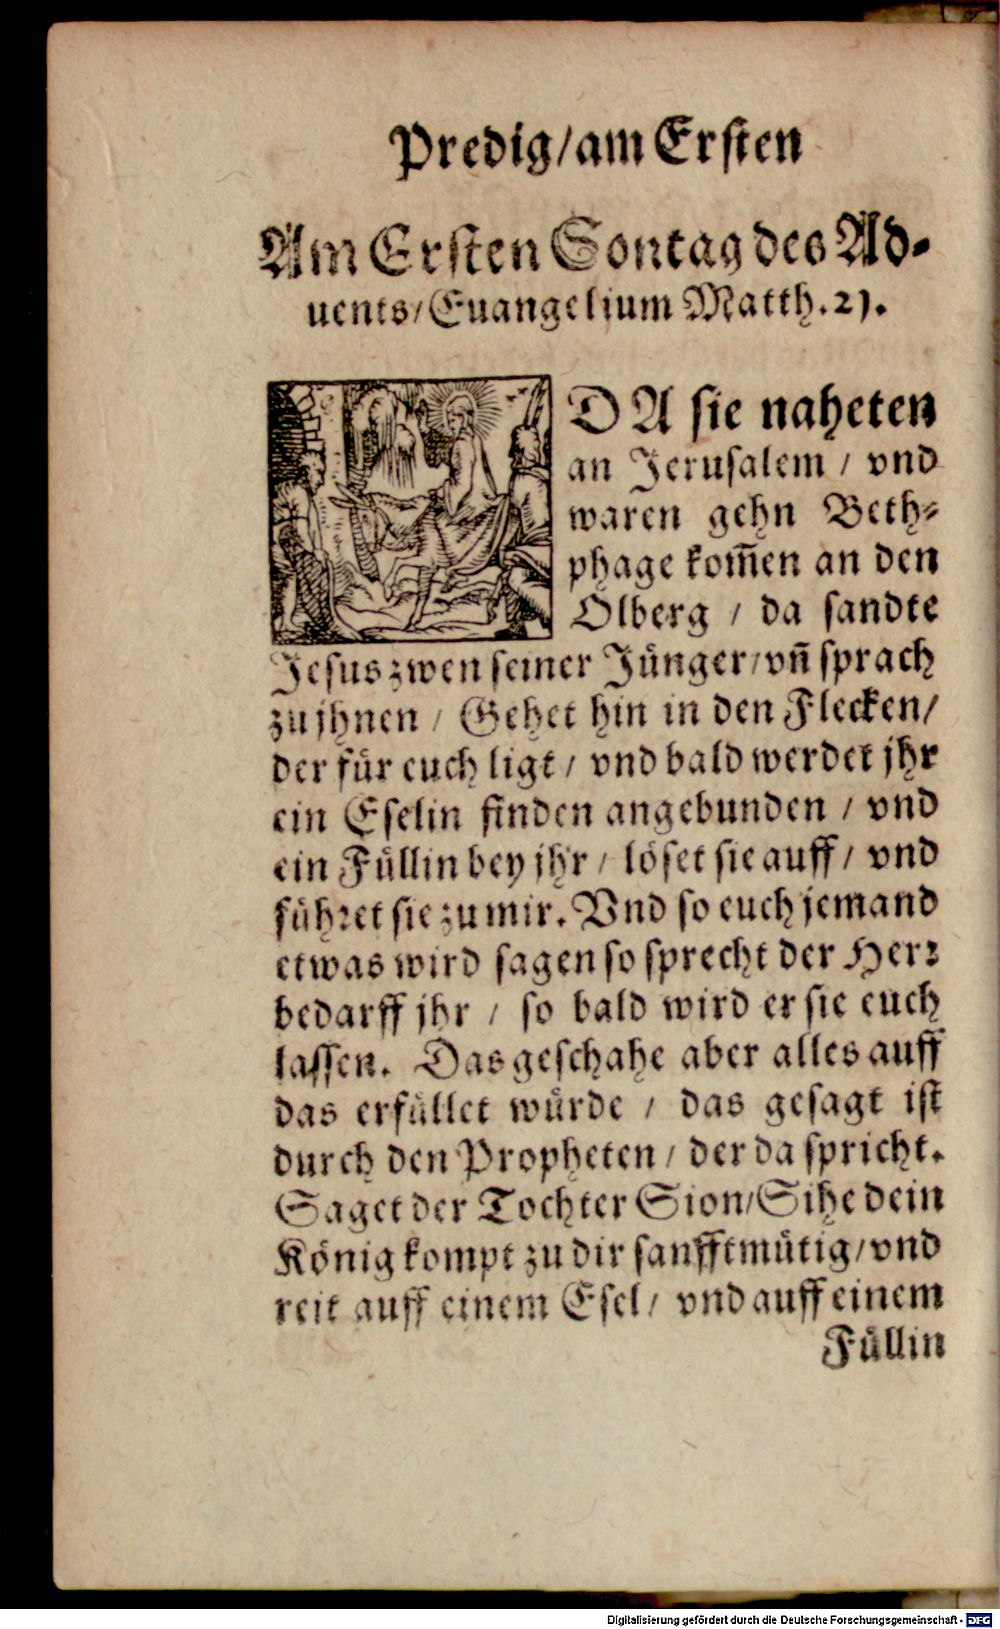 Predig/am Ersten
Am Ersten Sontag des Ad-
uents/Euangelium Matth.21.
DA sie naheten
an Jerusalem / vnd
waren gehn Beth-
phage kom̃en an den
Olberg / da sandte
Jesus zwen seiner Jünger/vñ sprach
zu jhnen / Gehet hin in den Flecken/
der für euch ligt / vnd bald werdet jhr
ein Eselin finden angebunden / vnd
ein Füllin bey jhr / löset sie auff / vnd
führet sie zu mir. Vnd so euch jemand
etwas wird sagen so sprecht der Herr
bedarff jhr / so bald wird er sie euch
lassen. Das geschahe aber alles auff
das erfüllet würde / das gesagt ist
durch den Propheten / der da spricht.
Saget der Tochter Sion/Sihe dein
König kompt zu dir sanfftmütig/vnd
reit auff einem Esel / vnd auff einem
Füllin
Digitalisierung gefördert durch die Deutsche Forschungsgemeinschaft - DFG